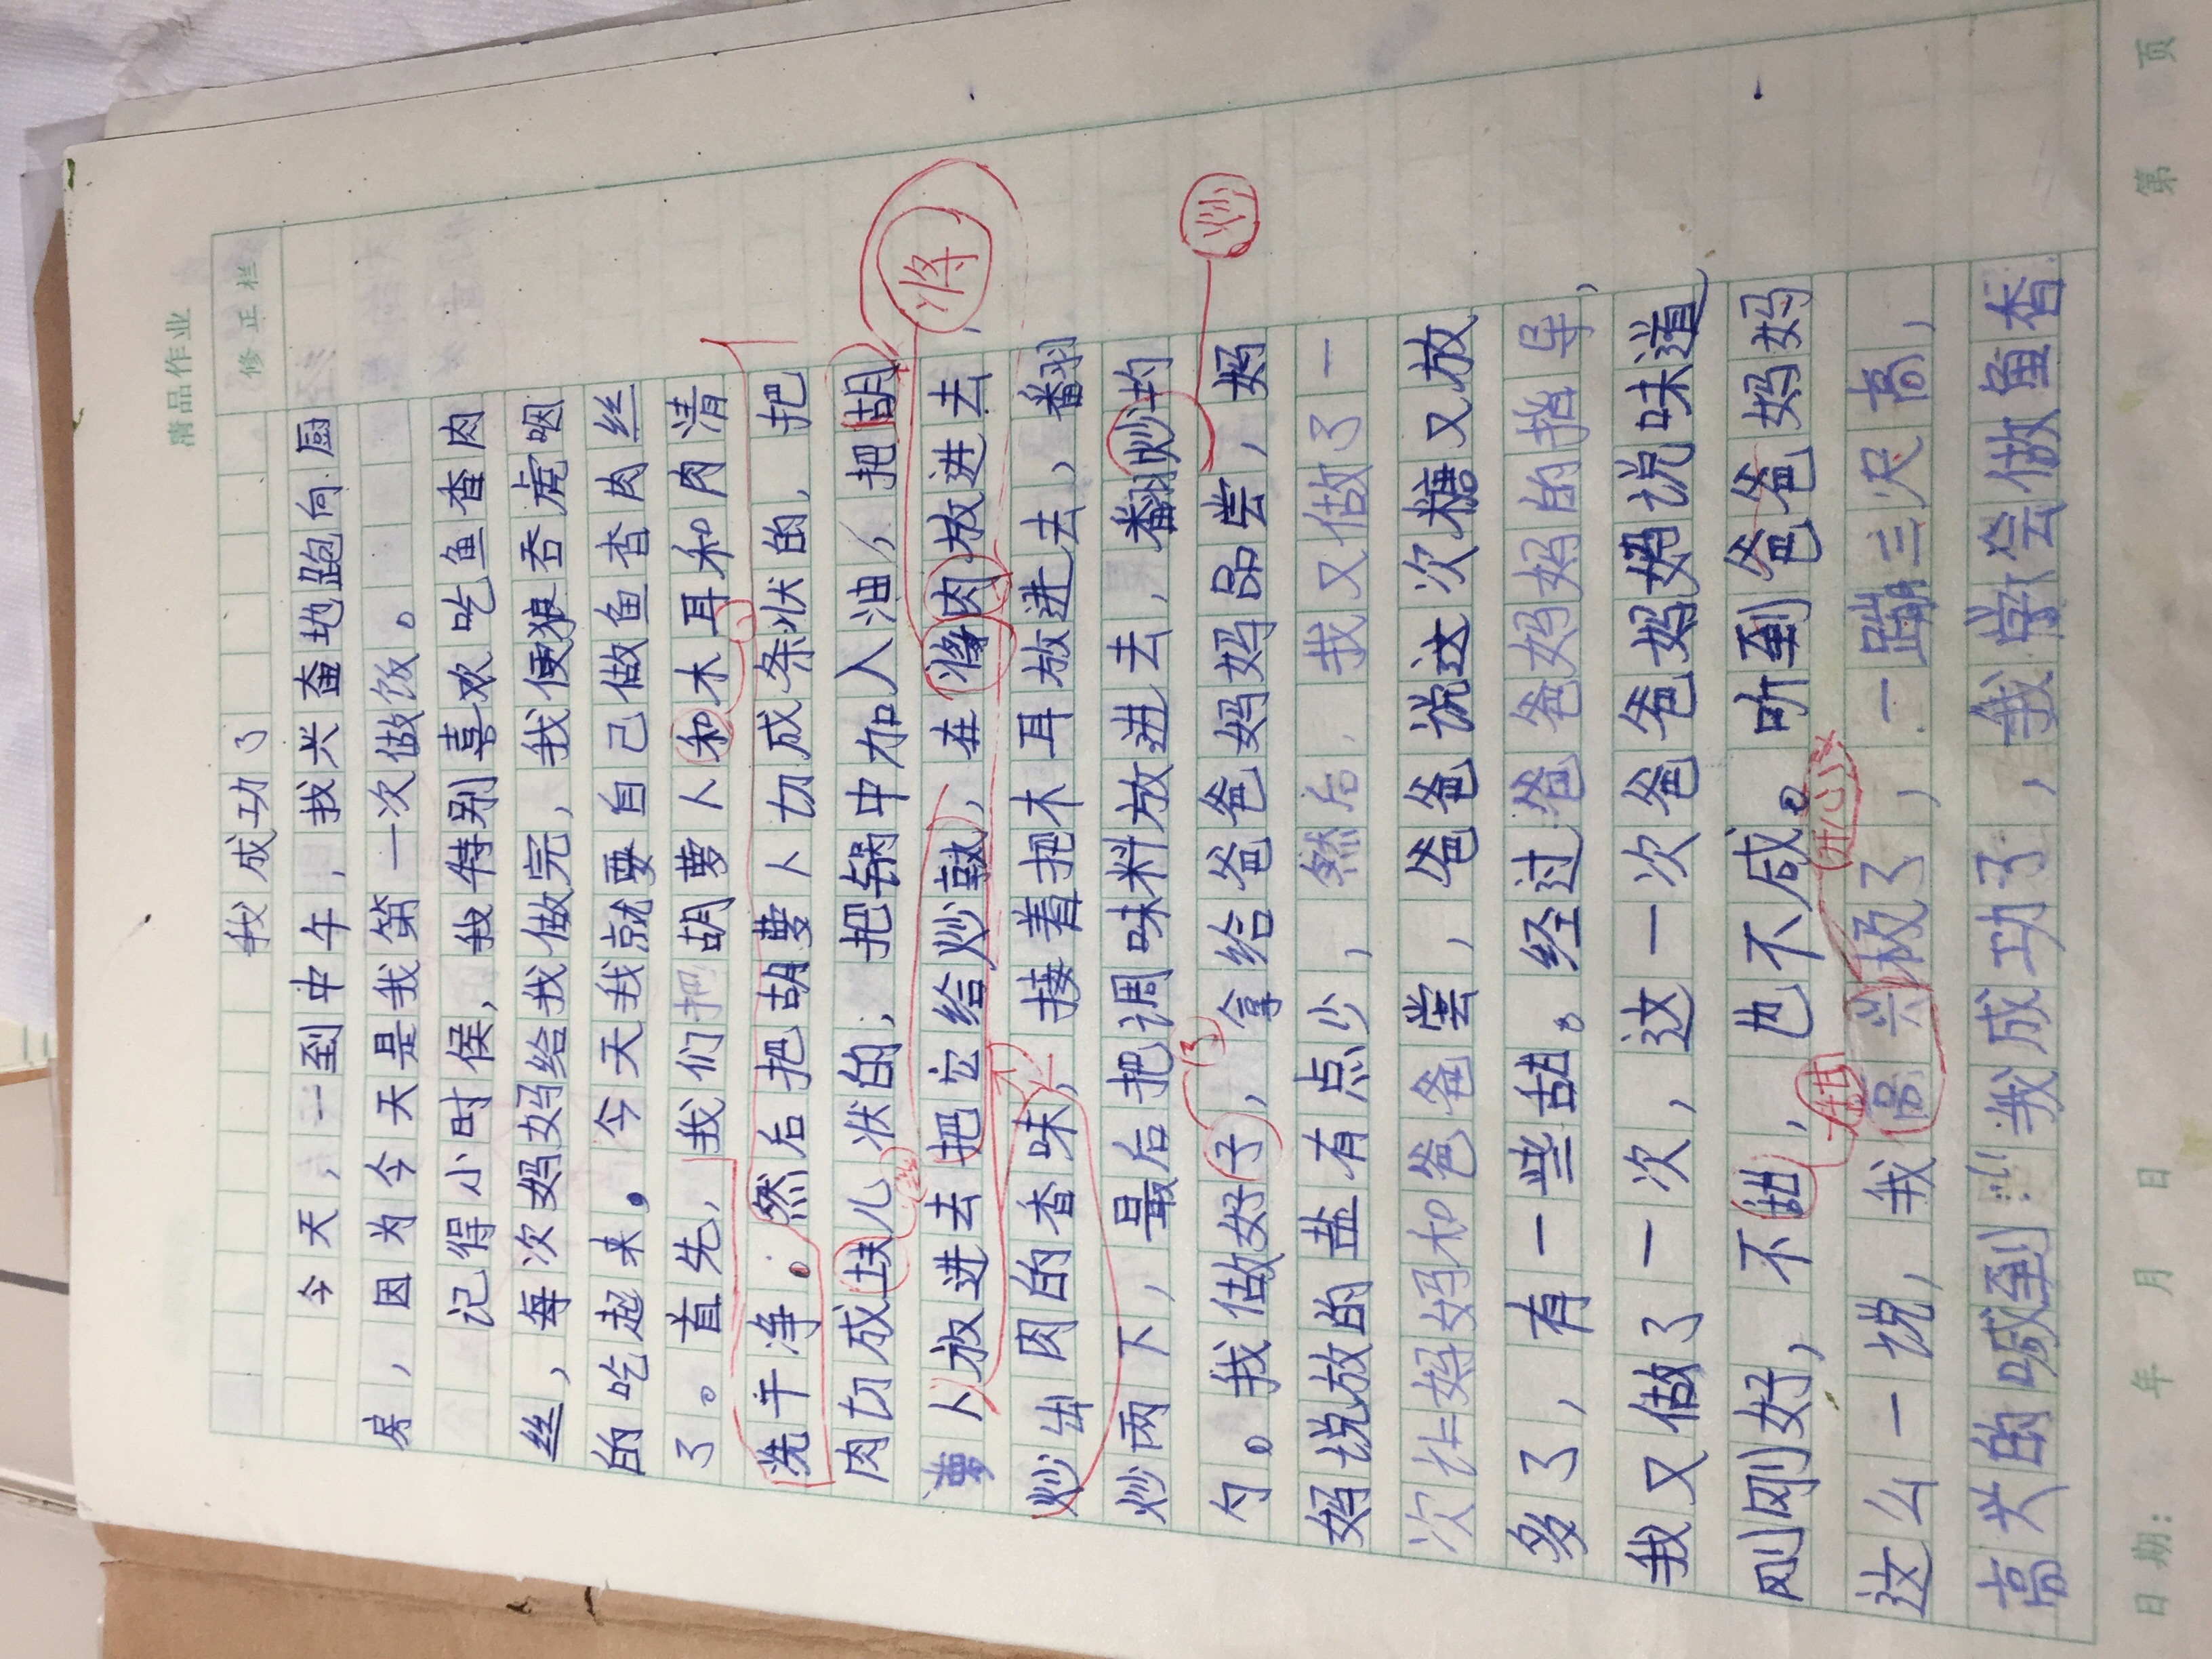 清品作业
修正栏
我成功了
今天，一到中午，我兴奋地跑向厨
房，因为今天是我第一次做饭。
记得小时侯，我特别喜欢吃鱼香肉
丝，每次妈妈给我做完，我便狼吞虎咽
的吃起来。今天我就要自己做鱼香肉丝
了。首先，我们把胡萝卜和木耳和肉清
洗干净。然后把胡萝卜切成条状的，把
肉切成块儿状的，把锅中加入油，把胡
将
萝卜放进去把它给炒熟，在将肉放进去，
炒出肉的香味，接着把木耳放进去，翻
炒两下，最后把调味料放进去，翻炒均
炒
匀。我做好子，拿给爸爸妈妈品尝，妈
了
妈说放的盐有点少，然后，我又做了一
次让妈妈和爸爸尝，爸爸说这次糖又放
多了，有一些甜。经过爸爸妈妈的指导，
我又做了一次，这一次爸爸妈妈说味道
刚刚好，不甜，也不咸。听到爸爸妈妈
甜
开心
这么一说，我高兴极了，一蹦三尺高，
高兴的喊到!!!我成功了，我学会做鱼香
日期： 年 月 日 第 页